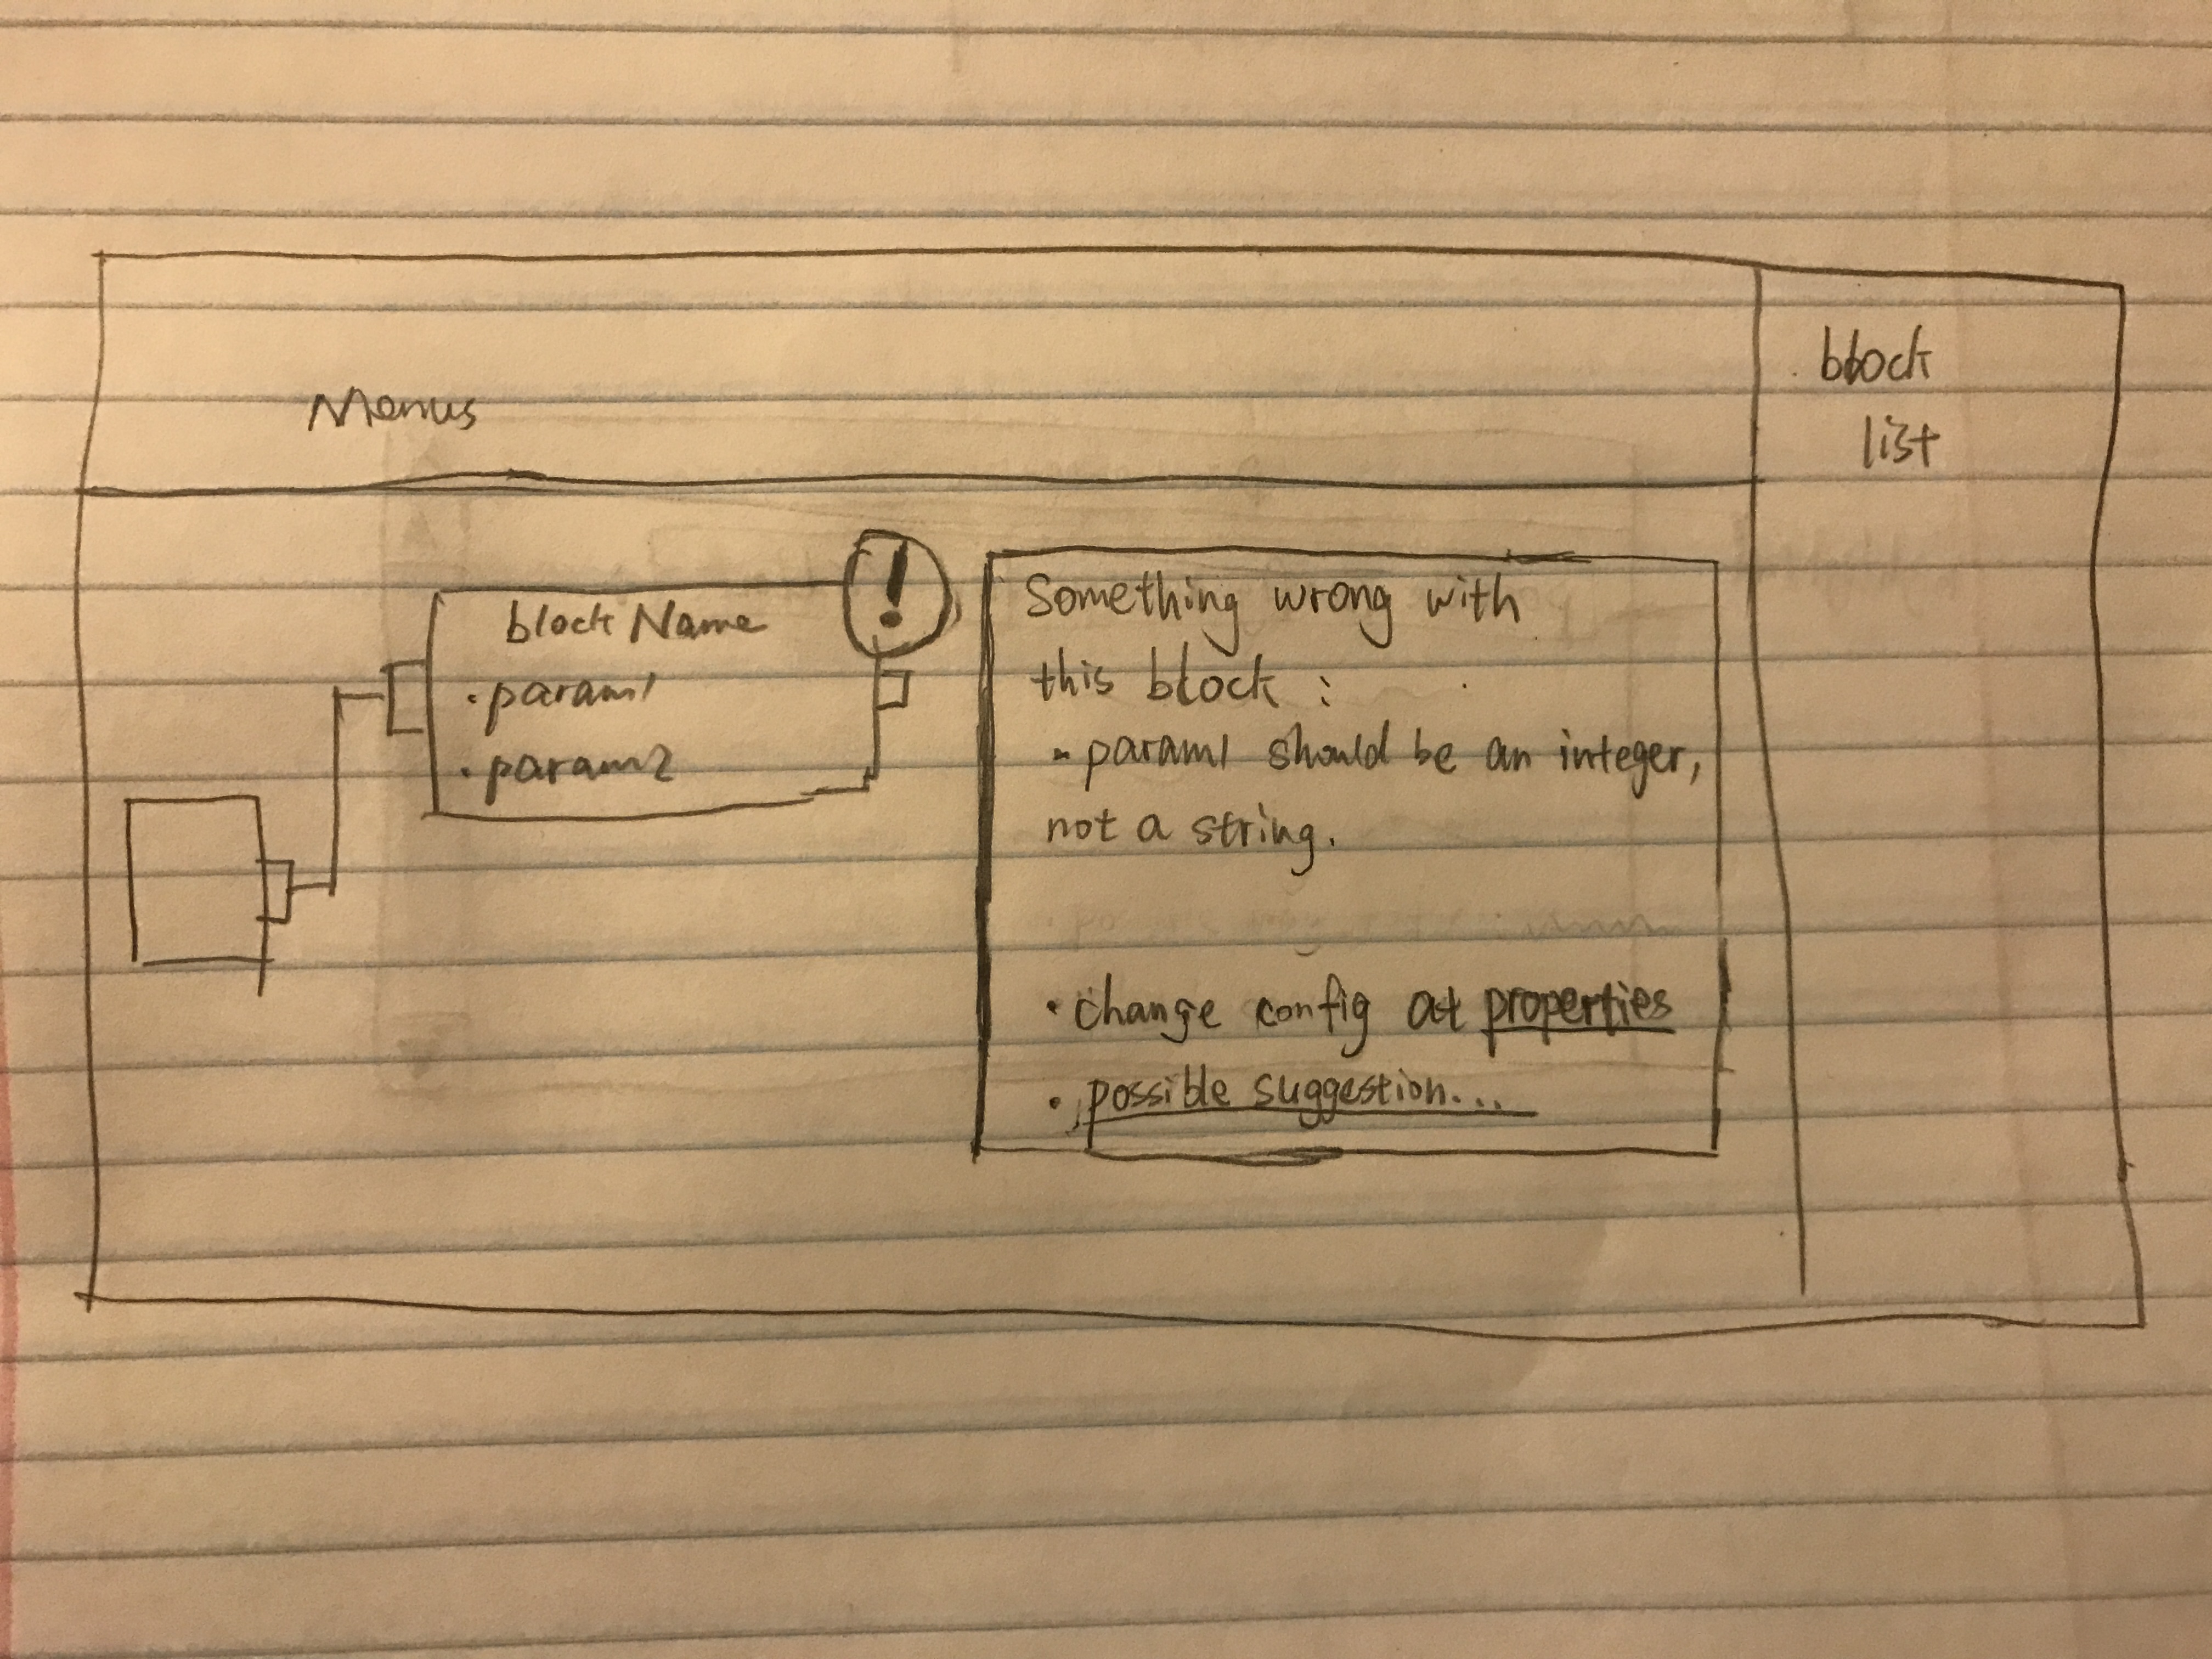 Menus
block
list
!
block Name
• param1
• param2
Something wrong with
this block :
- param1 should be an integer,
not a string.
• change config at properties
• possible suggestion...